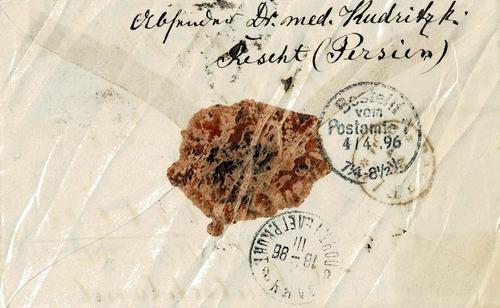 Absender Dr. med. Kudritzki
Rescht (Persien)
Bestellt
vom
Postamte
4/4.96
7¼-8½
III
18-96